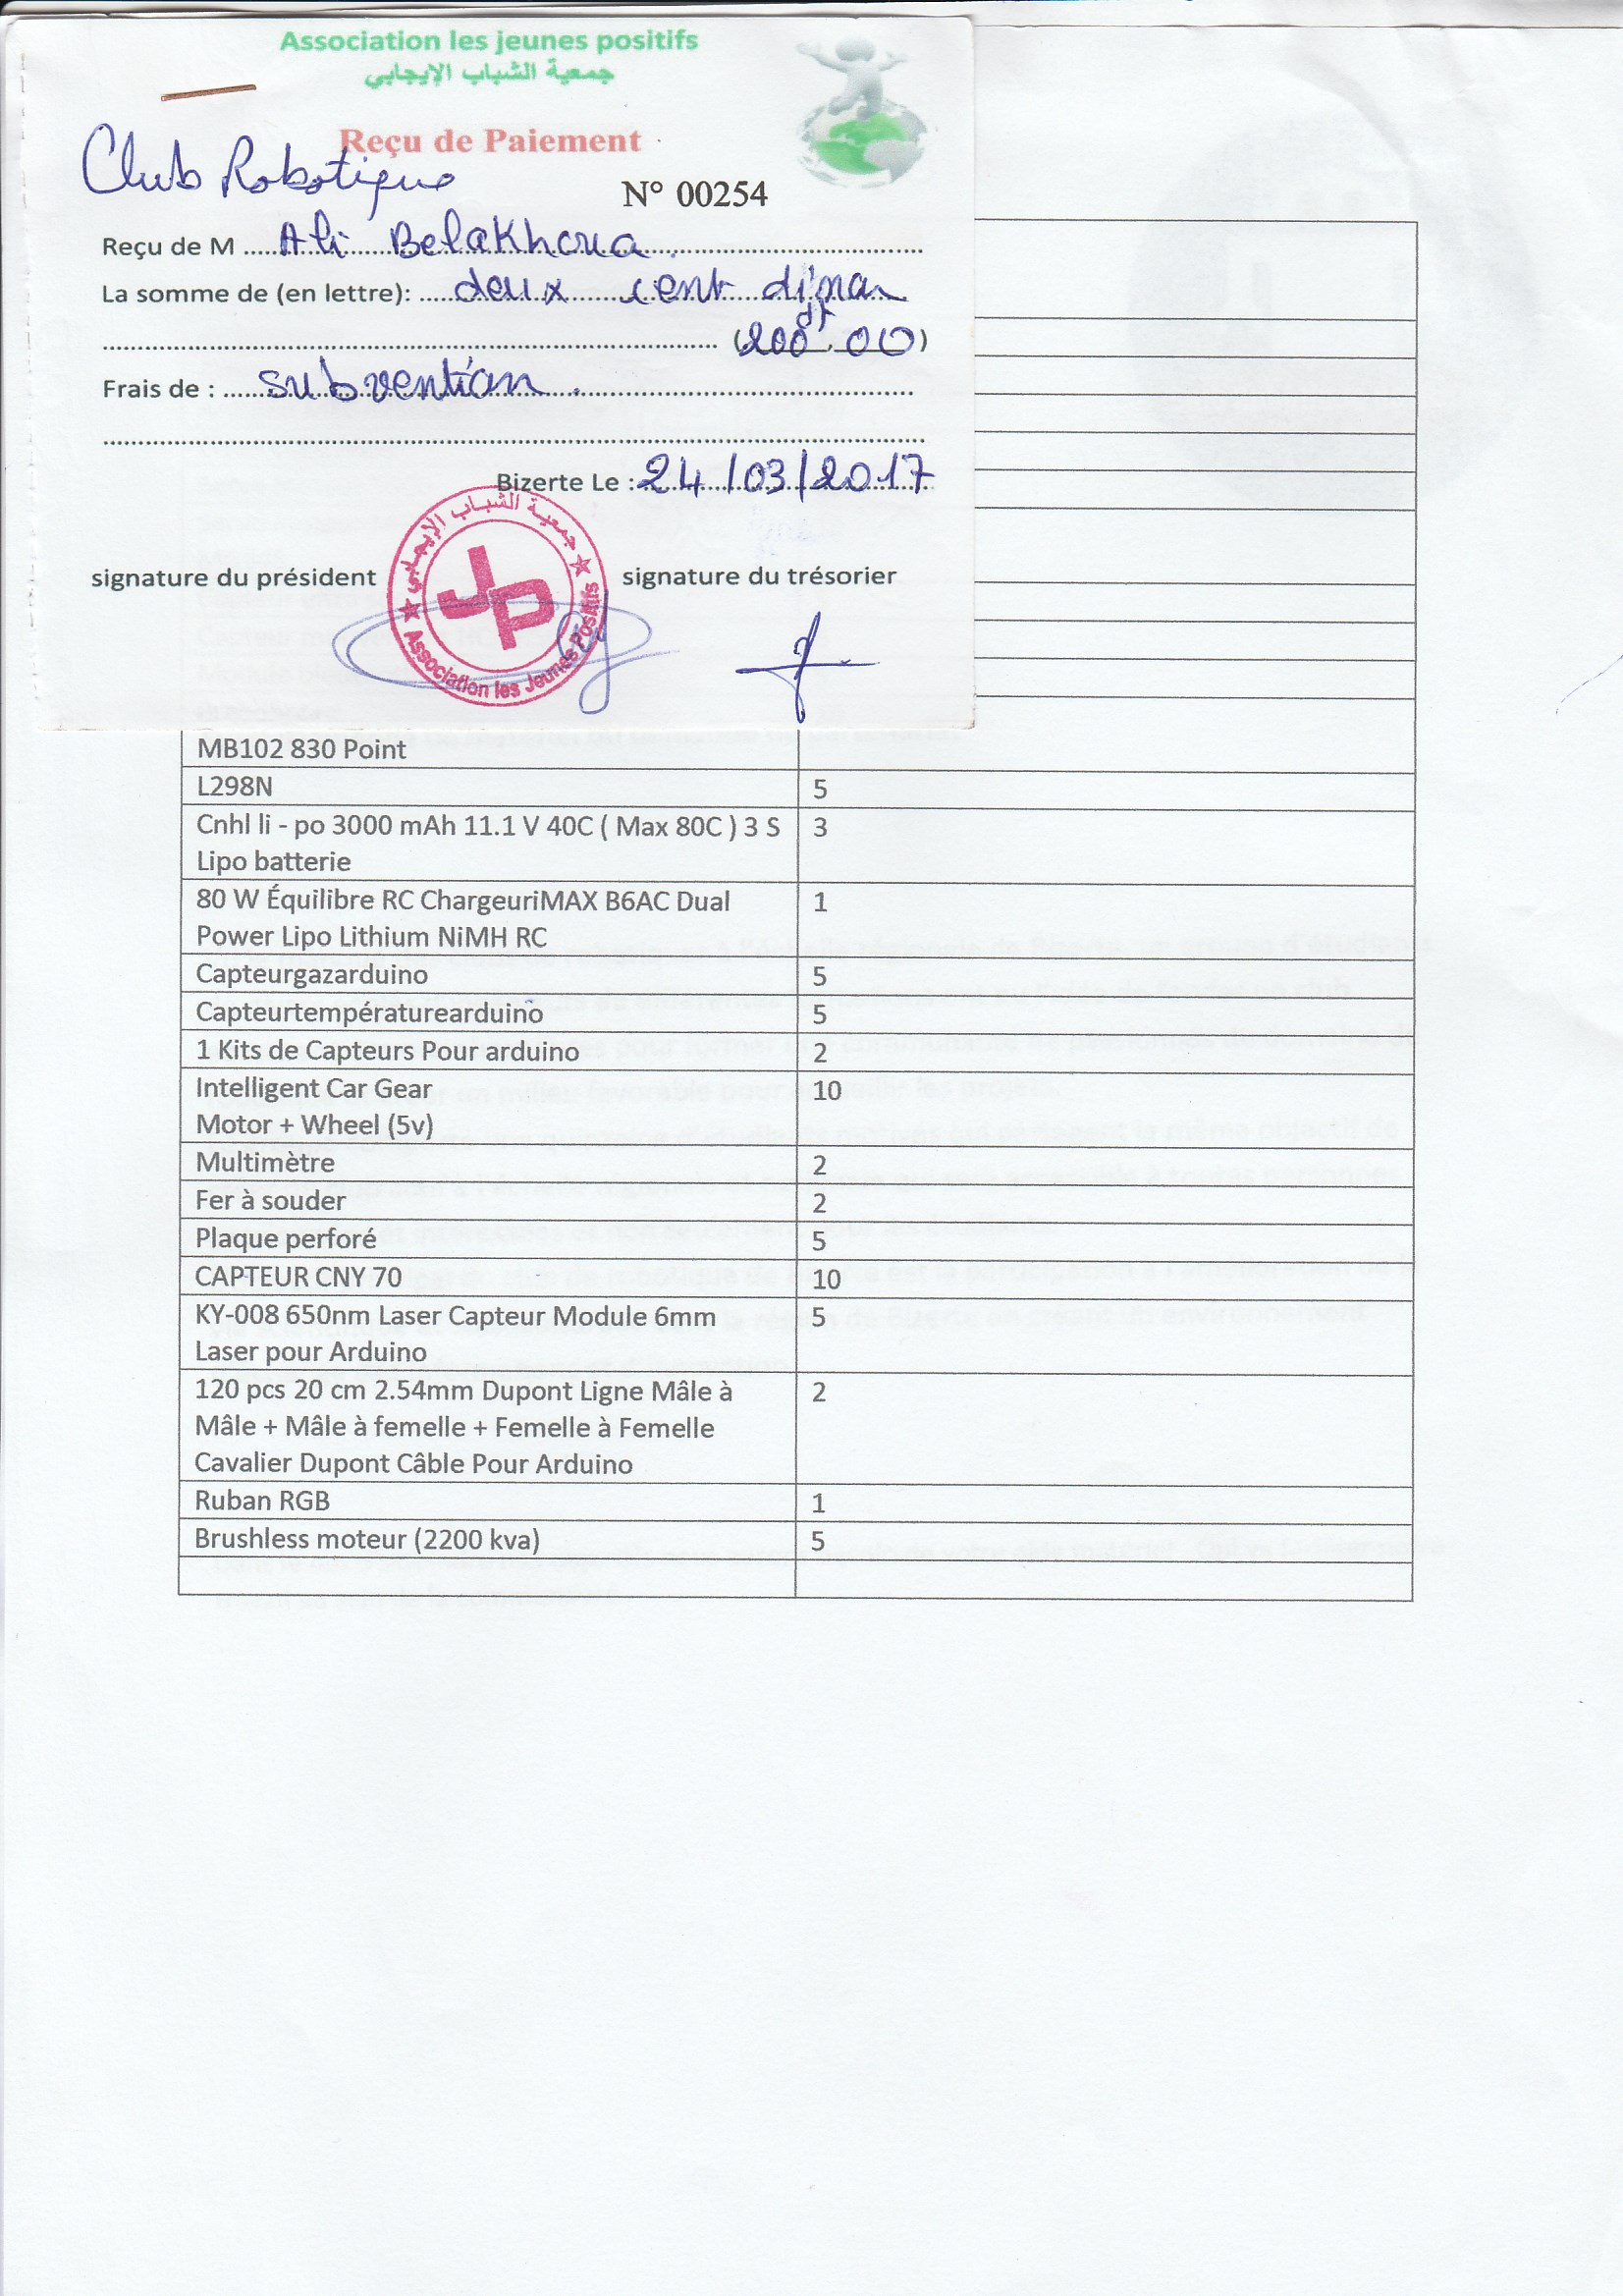 Association les jeunes positifs
جمعية الشباب الإيجابي
Reçu de Paiement
Club Robotique
N° 00254
Reçu de M Ali Belakhoua
La somme de (en lettre): deux cent dinar
(200dt,00)
Frais de : subvention.
Bizerte Le : 24/03/2017
signature du président
signature du trésorier
جمعية الشباب الإيجابي
JP
Association les Jeunes Positifs
MB102 830 Point
L298N 5
Cnhl li - po 3000 mAh 11.1 V 40C ( Max 80C ) 3 S 3
Lipo batterie
80 W Équilibre RC ChargeuriMAX B6AC Dual 1
Power Lipo Lithium NiMH RC
Capteurgazarduino 5
Capteurtempératurearduino 5
1 Kits de Capteurs Pour arduino 2
Intelligent Car Gear 10
Motor + Wheel (5v)
Multimètre 2
Fer à souder 2
Plaque perforé 5
CAPTEUR CNY 70 10
KY-008 650nm Laser Capteur Module 6mm 5
Laser pour Arduino
120 pcs 20 cm 2.54mm Dupont Ligne Mâle à 2
Mâle + Mâle à femelle + Femelle à Femelle
Cavalier Dupont Câble Pour Arduino
Ruban RGB 1
Brushless moteur (2200 kva) 5